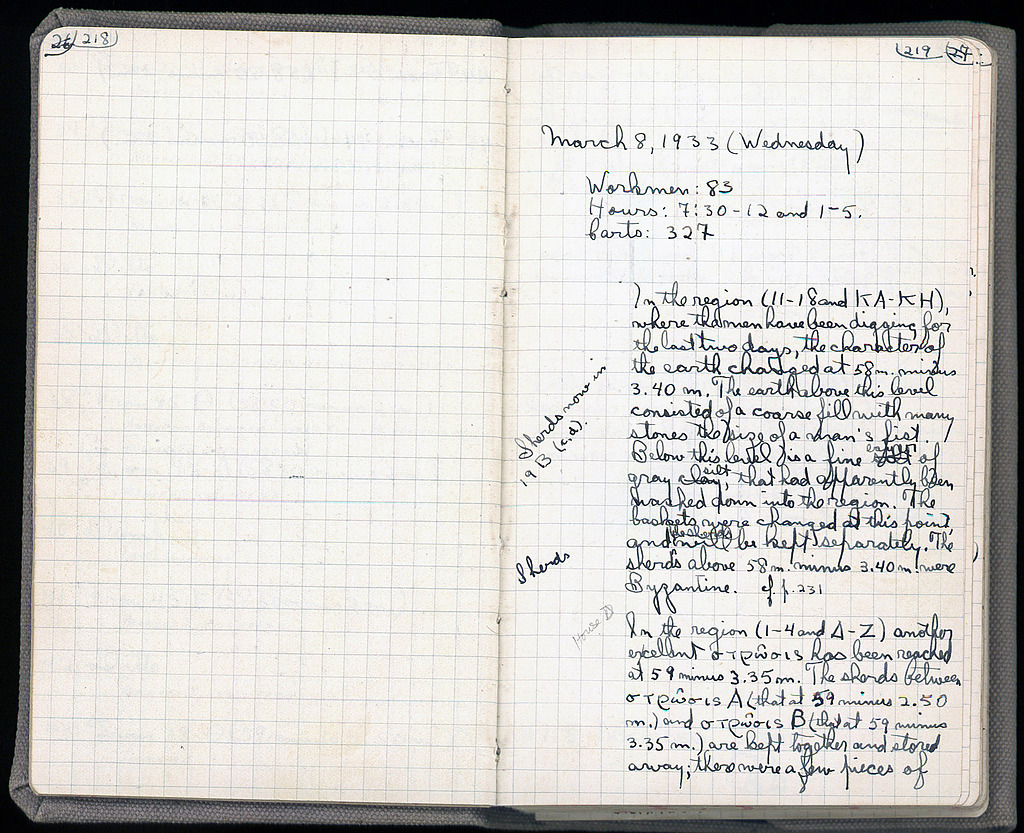 26 218
219 27
March 8, 1933 (Wednesday)
Workmen: 83
Hours: 7:30-12 and 1-5.
Carts: 327
In the region (11-18 and KA-KH),
where the men have been digging for
the last two days, the character of
the earth changed at 58 m. minus
3.40 m. The earth above this level
consisted of a coarse fill with many
stones the size of a man's fist.
Below this level is a fine layer of
gray clay, silt, that had apparently been
washed down into the region. The
baskets were changed at this point
and the sherds will be kept separately. The
sherds above 58 m. minus 3.40 m. were
Byzantine. cf. p. 231
Sherds now in
19 B (c, d).
Sherds
House D
In the region (1-4 and Δ-Z) another
excellent στρῶσις has been reached
at 59 minus 3.35 m. The sherds between
στρῶσις A (that at 59 minus 2.50
m.) and στρῶσις B (that at 59 minus
3.35 m.) are kept together and stored
away; there were a few pieces of